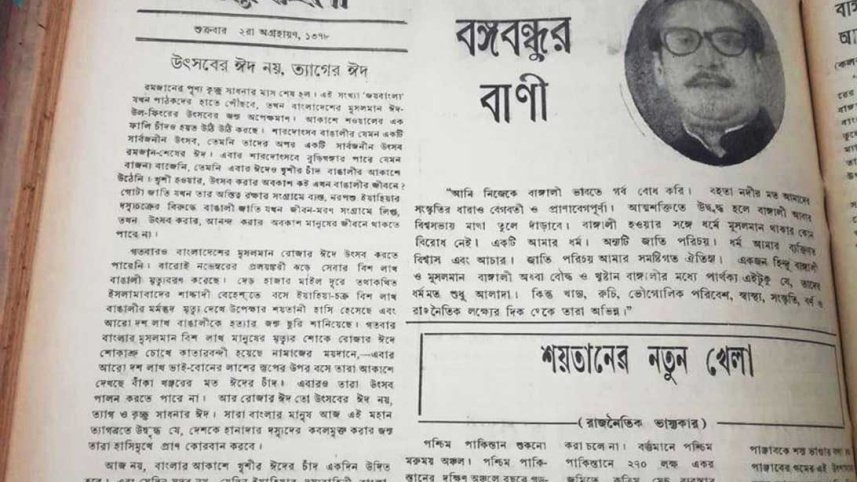 শুক্রবার ২রা অগ্রহায়ণ, ১৩৭৮
উৎসবের ঈদ নয়, ত্যাগের ঈদ
রমজানের পুণ্য কৃচ্ছ্র সাধনার মাস শেষ হল। এই সংখ্যা 'জয়বাংলা'
যখন পাঠকদের হাতে পৌঁছবে, তখন বাংলাদেশের মুসলমান ঈদ-
উল-ফিৎরের উৎসবের জন্য অপেক্ষমাণ। আকাশে শওয়ালের এক
ফালি চাঁদও হয়ত উঠি উঠি করছে। শারদোৎসব বাঙালীর যেমন একটি
সার্বজনীন উৎসব, তেমনি তাদের অপর একটি সার্বজনীন উৎসব
রমজান-শেষের ঈদ। এবার শারদোৎসবে বুড়িগঙ্গার পারে যেমন
বাজনা বাজেনি, তেমনি এবার ঈদেও খুশীর চাঁদ বাঙালীর আকাশে
উঠেনি। খুশী হওয়ার, উৎসব করার অবকাশ কই এখন বাঙালীর জীবনে?
গোটা জাতি যখন তার অস্তিত্ব রক্ষার সংগ্রামে ব্যস্ত, নরপশু ইয়াহিয়ার
দস্যুচক্রের বিরুদ্ধে বাঙালী জাতি যখন জীবন-মরণ সংগ্রামে লিপ্ত,
তখন উৎসব করার, আনন্দ করার অবকাশ মানুষের জীবনে থাকতে
পারে না।
গতবারও বাংলাদেশের মুসলমান রোজার ঈদে উৎসব করতে
পারেনি। বারোই নভেম্বরের প্রলয়ঙ্করী ঝড়ে সেবার বিশ লাখ
বাঙালী মৃত্যুবরণ করেছে। দেড় হাজার মাইল দূরে তথাকথিত
ইসলামাবাদের শাদ্দাদী বেহেশ্‌তে বসে ইয়াহিয়া-চক্র বিশ লাখ
বাঙালীর মর্মন্তুদ মৃত্যু দেখে উপেক্ষার শয়তানী হাসি হেসেছে এবং
আরো দশ লাখ বাঙালীকে হত্যার জন্য ছুরি শানিয়েছে। গতবার
বাংলার মুসলমান বিশ লাখ মানুষের মৃত্যুর শোকে রোজার ঈদে
শোকাশ্রু চোখে কাতারবন্দী হয়েছে নামাজের ময়দানে,—এবার
আরো দশ লাখ ভাই-বোনের লাশের স্তূপের উপর বসে তারা আকাশে
দেখছে বাঁকা খঞ্জরের মত ঈদের চাঁদ। এবারও তারা উৎসব
পালন করতে পারে না। আর রোজার ঈদ তো উৎসবের ঈদ নয়,
ত্যাগ ও কৃচ্ছ্র সাধনার ঈদ। সারা বাংলার মানুষ আজ এই মহান
ত্যাগব্রতে উদ্বুদ্ধ যে, দেশকে হানাদার দস্যুদের কবলমুক্ত করার জন্য
তারা হাসিমুখে প্রাণ কোরবান করবে।
আজ নয়, বাংলার আকাশে খুশীর ঈদের চাঁদ একদিন উদিত
বঙ্গবন্ধুর
বাণী
"আমি নিজেকে বাঙ্গালী ভাবতে গর্ব বোধ করি। বহতা নদীর মত আমাদের
সংস্কৃতির ধারাও বেগবতী ও প্রাণাবেগপূর্ণা। আত্মশক্তিতে উদ্বুদ্ধ হলে বাঙ্গালী আবার
বিশ্বসভায় মাথা তুলে দাঁড়াবে। বাঙ্গালী হওয়ার সঙ্গে ধর্মে মুসলমান থাকার কোন
বিরোধ নেই। একটি আমার ধর্ম। অন্যটি জাতি পরিচয়। ধর্ম আমার ব্যক্তিগত
বিশ্বাস এবং আচার। জাতি পরিচয় আমার সমষ্টিগত ঐতিহ্য। একজন হিন্দু বাঙ্গালী
ও মুসলমান বাঙ্গালী অথবা বৌদ্ধ ও খৃষ্টান বাঙ্গালীর মধ্যে পার্থক্য এইটুকু যে, তাদের
ধর্মমত শুধু আলাদা। কিন্তু খাদ্য, রুচি, ভৌগোলিক পরিবেশ, স্বাস্থ্য, সংস্কৃতি, বর্ণ ও
রাজনৈতিক লক্ষ্যের দিক থেকে তারা অভিন্ন।"
শয়তানের নতুন খেলা
(রাজনৈতিক ভাষ্যকার)
পশ্চিম পাকিস্তান শুকনো
মরুময় অঞ্চল। পশ্চিম পাকি-
স্তানের দক্ষিণ অঞ্চলে বছরে
করা চলে না। বর্ত্তমানে পশ্চিম
পাকিস্তানে ২৭০ লক্ষ একর
জমিতে কৃত্রিম সেচ ব্যবস্থার